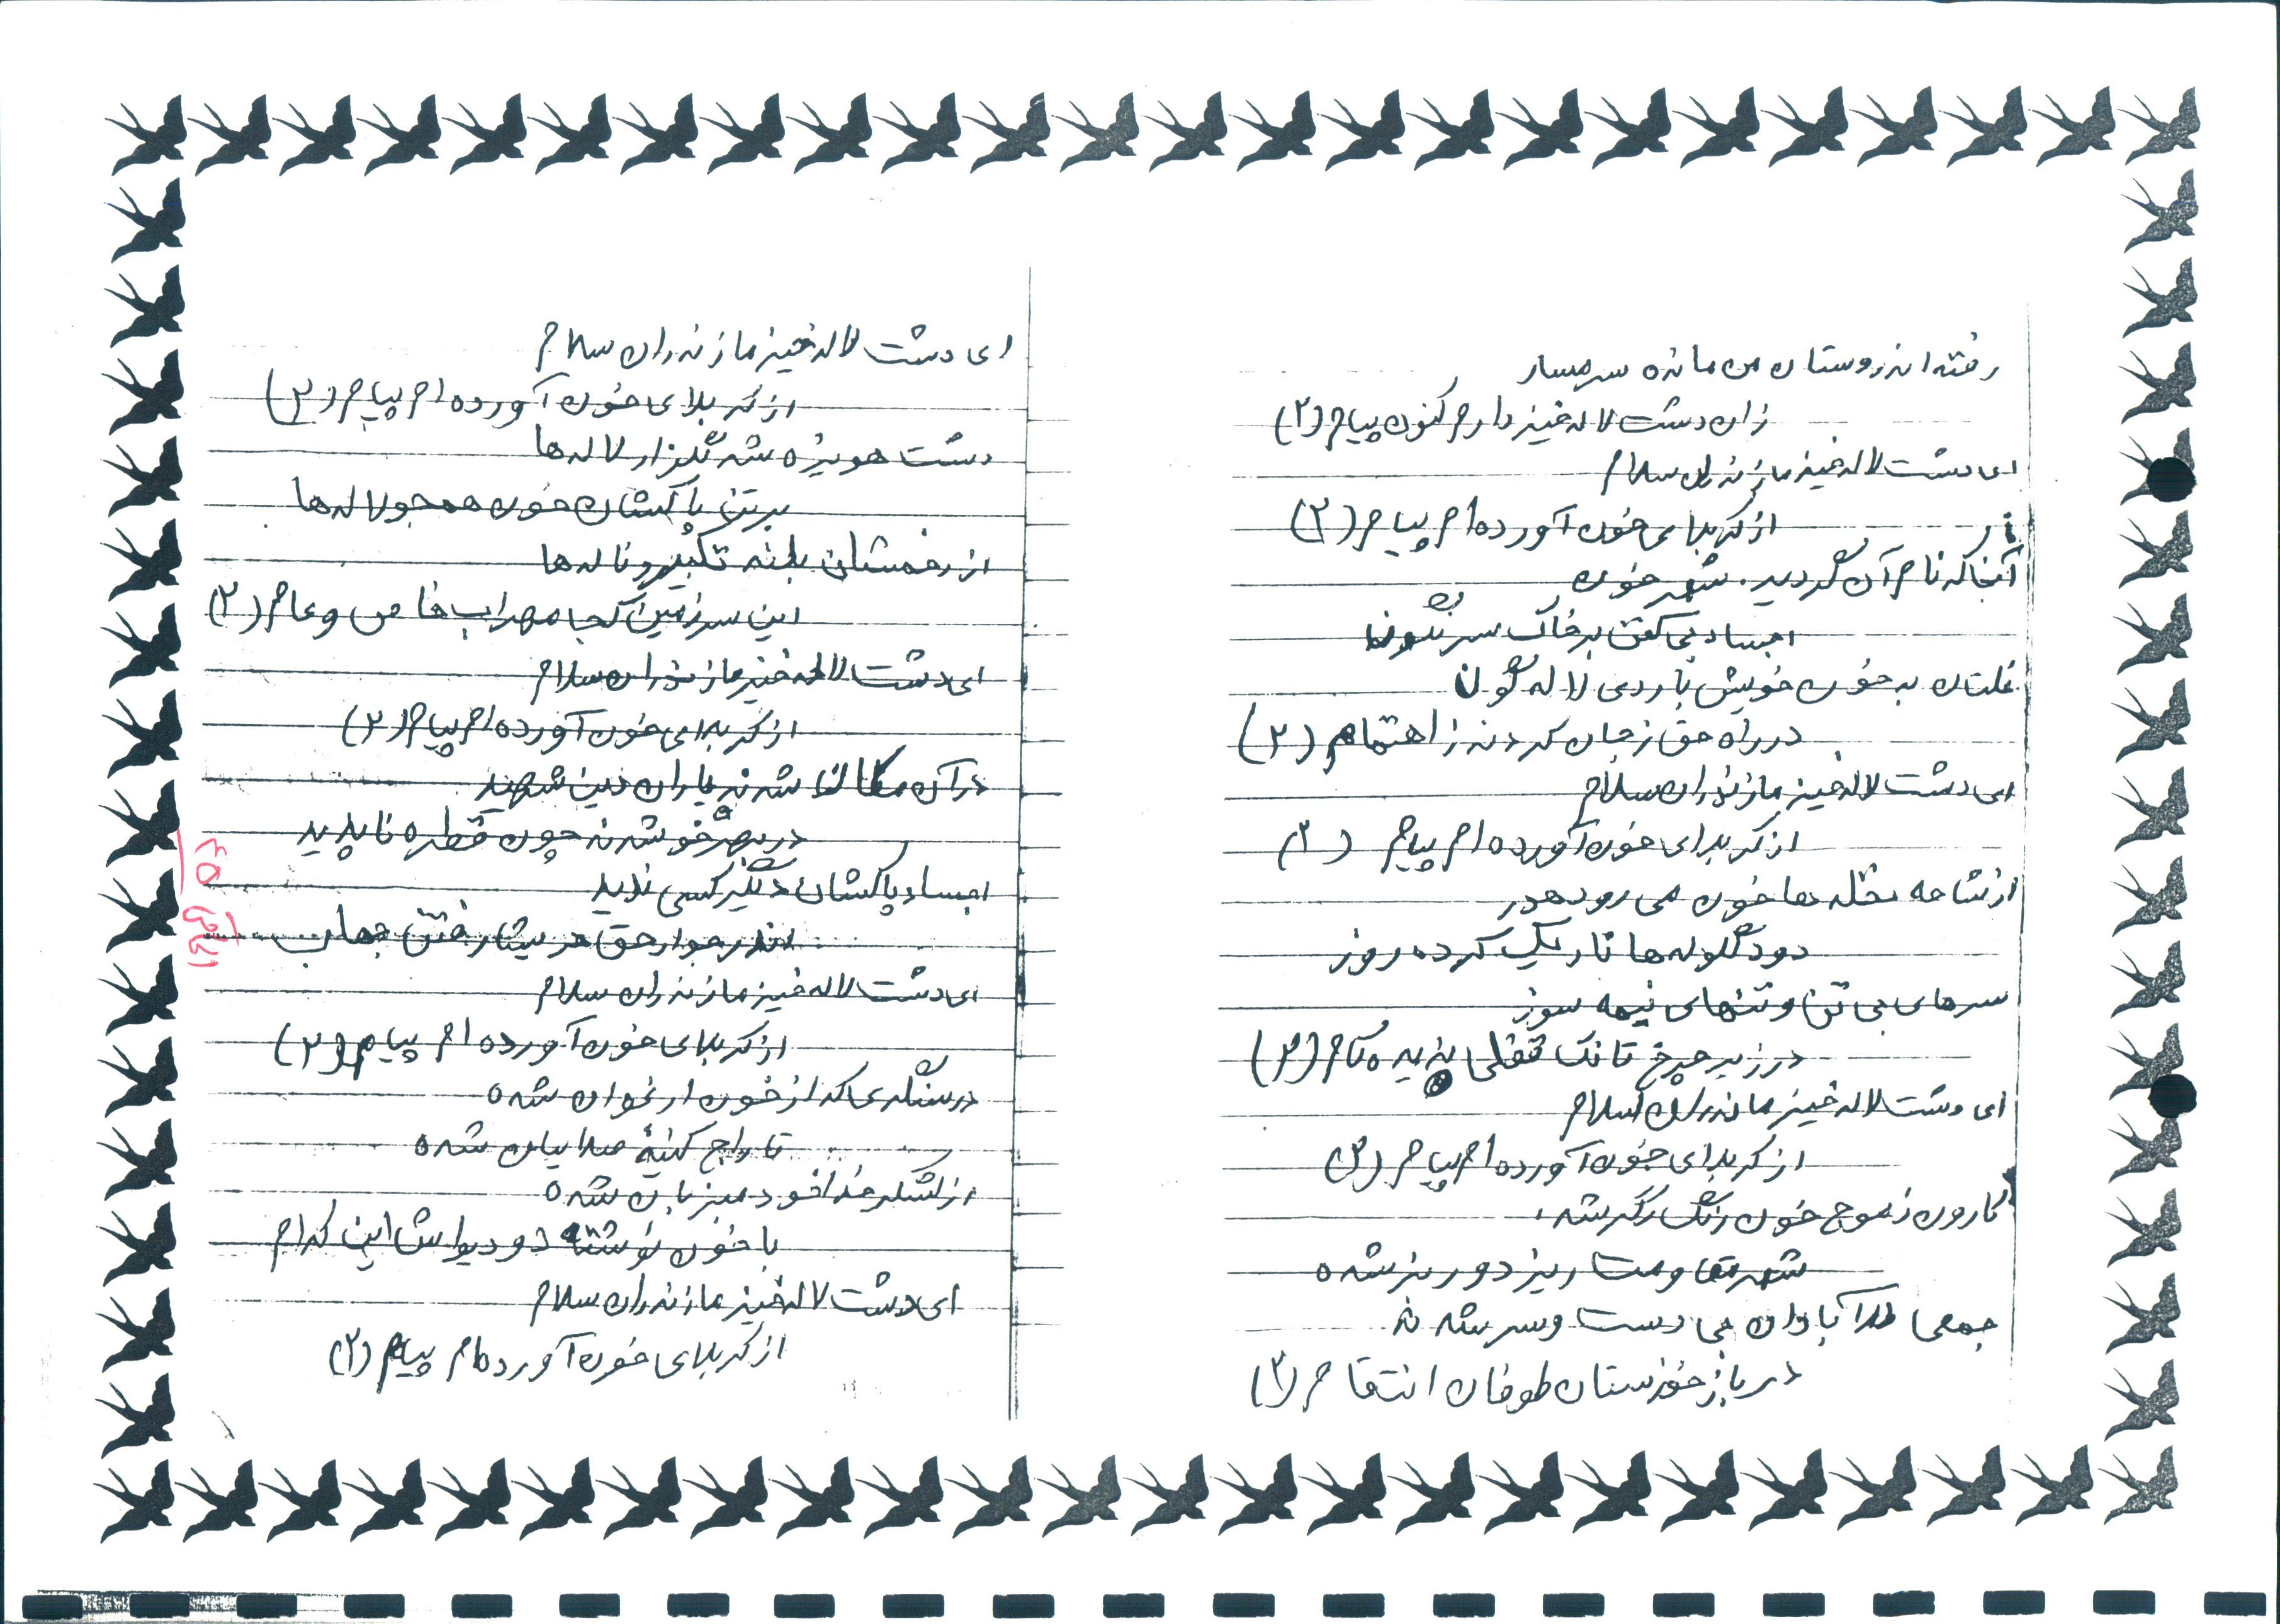 رفته اند دوستان من مانده شرمسار
زان دشت لاله خیز دارم کنون پیام (۲)
ای دشت لاله خیز مازندران سلام
از کربلای خون آورده ام پیام (۲)
آنجا که نام آن گردید شهر خون
اجساد بی کفن بر خاک سرنگون
غلتان به خون خویش با روی لاله گون
در راه حق ز جان کردند ز اهتمام (۲)
ای دشت لاله خیز مازندران سلام
از کربلای خون آورده ام پیام (۲)
از شاخه نخله ها خون می رود هدر
دود گلوله ها تاریک کرده روز
سرهای بی تن و تنهای نیمه سوز
در زیر چرخ تانک
ای دشت لاله خیز مازندران سلام
از کربلای خون آورده ام پیام (۲)
کارون ز موج خون رنگ دگر شده
شهر مقاومت زیر و زبر شده
جمعی آبادان بی دست و سر شدند
در باز خوزستان طوفان انتقام (۲)
ای دشت لاله خیز مازندران سلام
از کربلای خون آورده ام پیام (۲)
دشت هویزه شد گلزار لاله ها
بر تن پاکشان خون همچو لاله ها
از زخمشان بلند تکبیر و ناله ها
این سرزمین کجا مهراب خاص و عام (۲)
ای دشت لاله خیز مازندران سلام
از کربلای خون آورده ام پیام (۲)
در آن مکان شدند یاران دین شهید
در بهر خو شدند چون قطره ناپدید
اجساد پاکشان دیگر کسی ندید
اندر جوار حق
ای دشت لاله خیز مازندران سلام
از کربلای خون آورده ام پیام (۲)
در سنگری که از خون ارغوان شده
تاراج کینهٔ شده
از لشکر خدا خود میزبان شده
با خون نوشته در دیوارش این کرام
ای دشت لاله خیز مازندران سلام
از کربلای خون آورده ام پیام (۲)